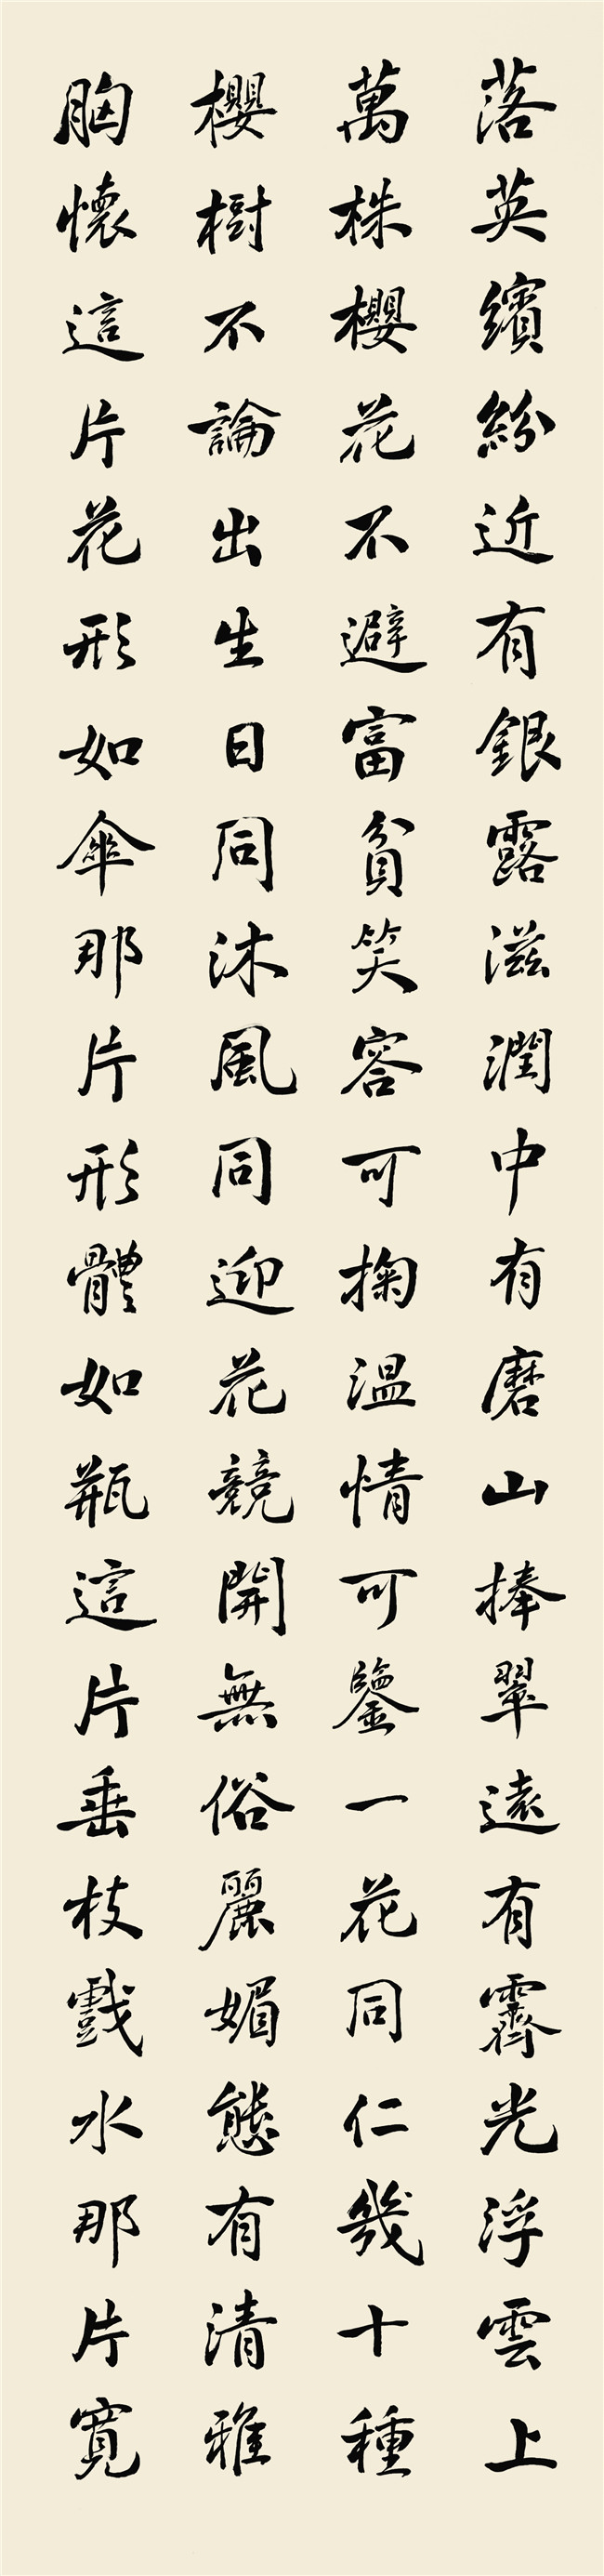 落英繽紛近有銀露滋潤中有磨山捧翠遠有霽光浮雲上
萬株櫻花不避富貧笑容可掬温情可鑒一花同仁幾十種
櫻樹不論出生日同沐風同迎花競開無俗麗媚態有清雅
胸懷這片花形如傘那片形體如瓶這片垂枝戲水那片寬